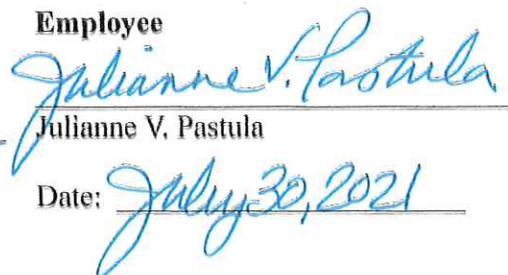 Employee
Julianne V. Pastula
Julianne V. Pastula
Date: July 30, 2021